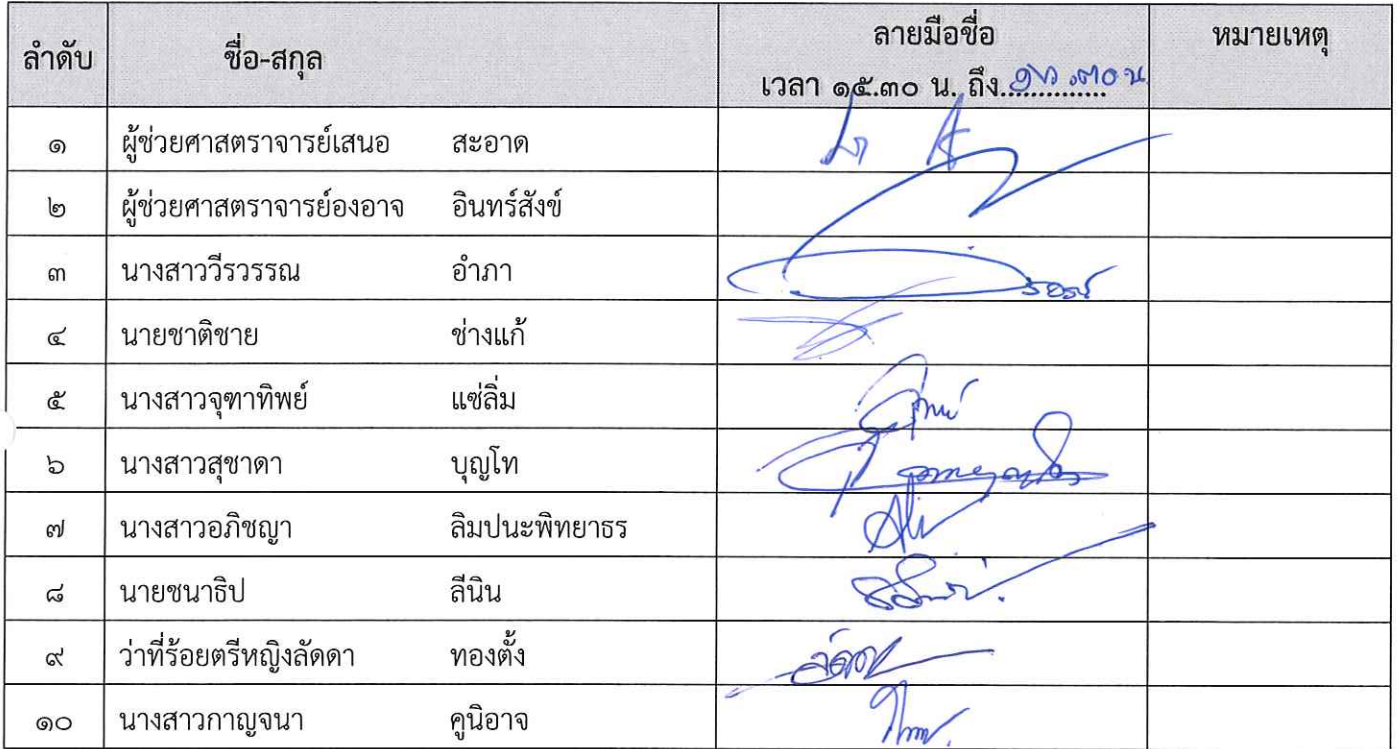 ลำดับ ชื่อ-สกุล ลายมือชื่อ หมายเหตุ
เวลา ๑๕.๓๐ น. ถึง..............
๑ ผู้ช่วยศาสตราจารย์เสนอ สะอาด
๒ ผู้ช่วยศาสตราจารย์องอาจ อินทร์สังข์
๓ นางสาววีรวรรณ อำภา
๔ นายชาติชาย ช่างแก้
๕ นางสาวจุฑาทิพย์ แซ่ลิ่ม
๖ นางสาวสุชาดา บุญโท
๗ นางสาวอภิชญา ลิมปนะพิทยาธร
๘ นายชนาธิป ลีนิน
๙ ว่าที่ร้อยตรีหญิงลัดดา ทองตั้ง
๑๐ นางสาวกาญจนา คูนิอาจ